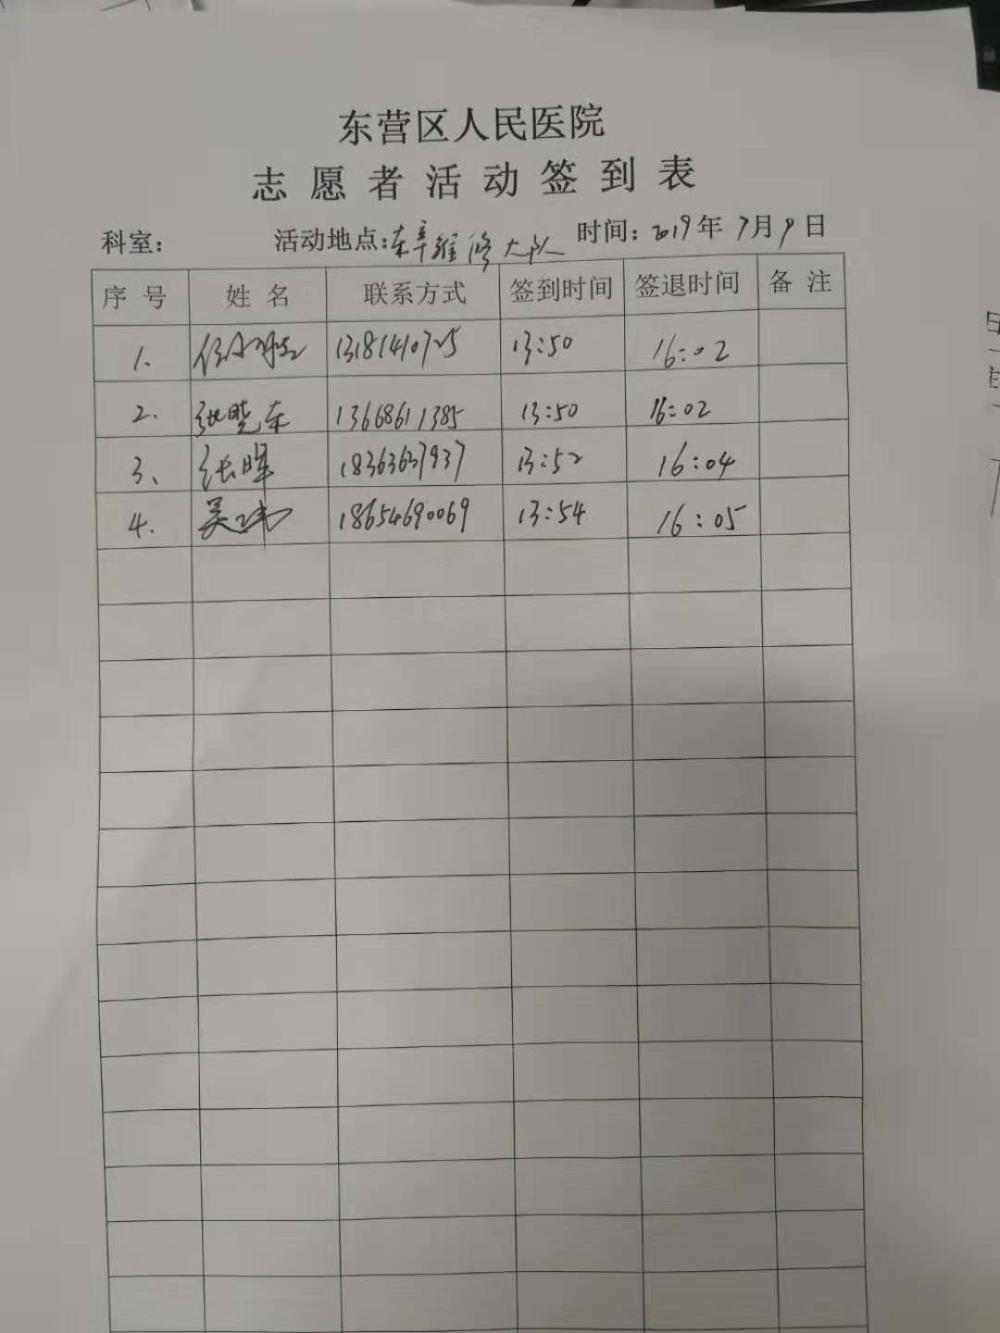 东营区人民医院
志愿者活动签到表
科室： 活动地点：东辛维修大队 时间：2019年7月9日
序号 姓名 联系方式 签到时间 签退时间 备注
1. 13181410725 13:50 16:02
2. 张晓东 13668611385 13:50 16:02
3、 张晖 18363637937 13:52 16:04
4. 吴玮 18654690069 13:54 16:05